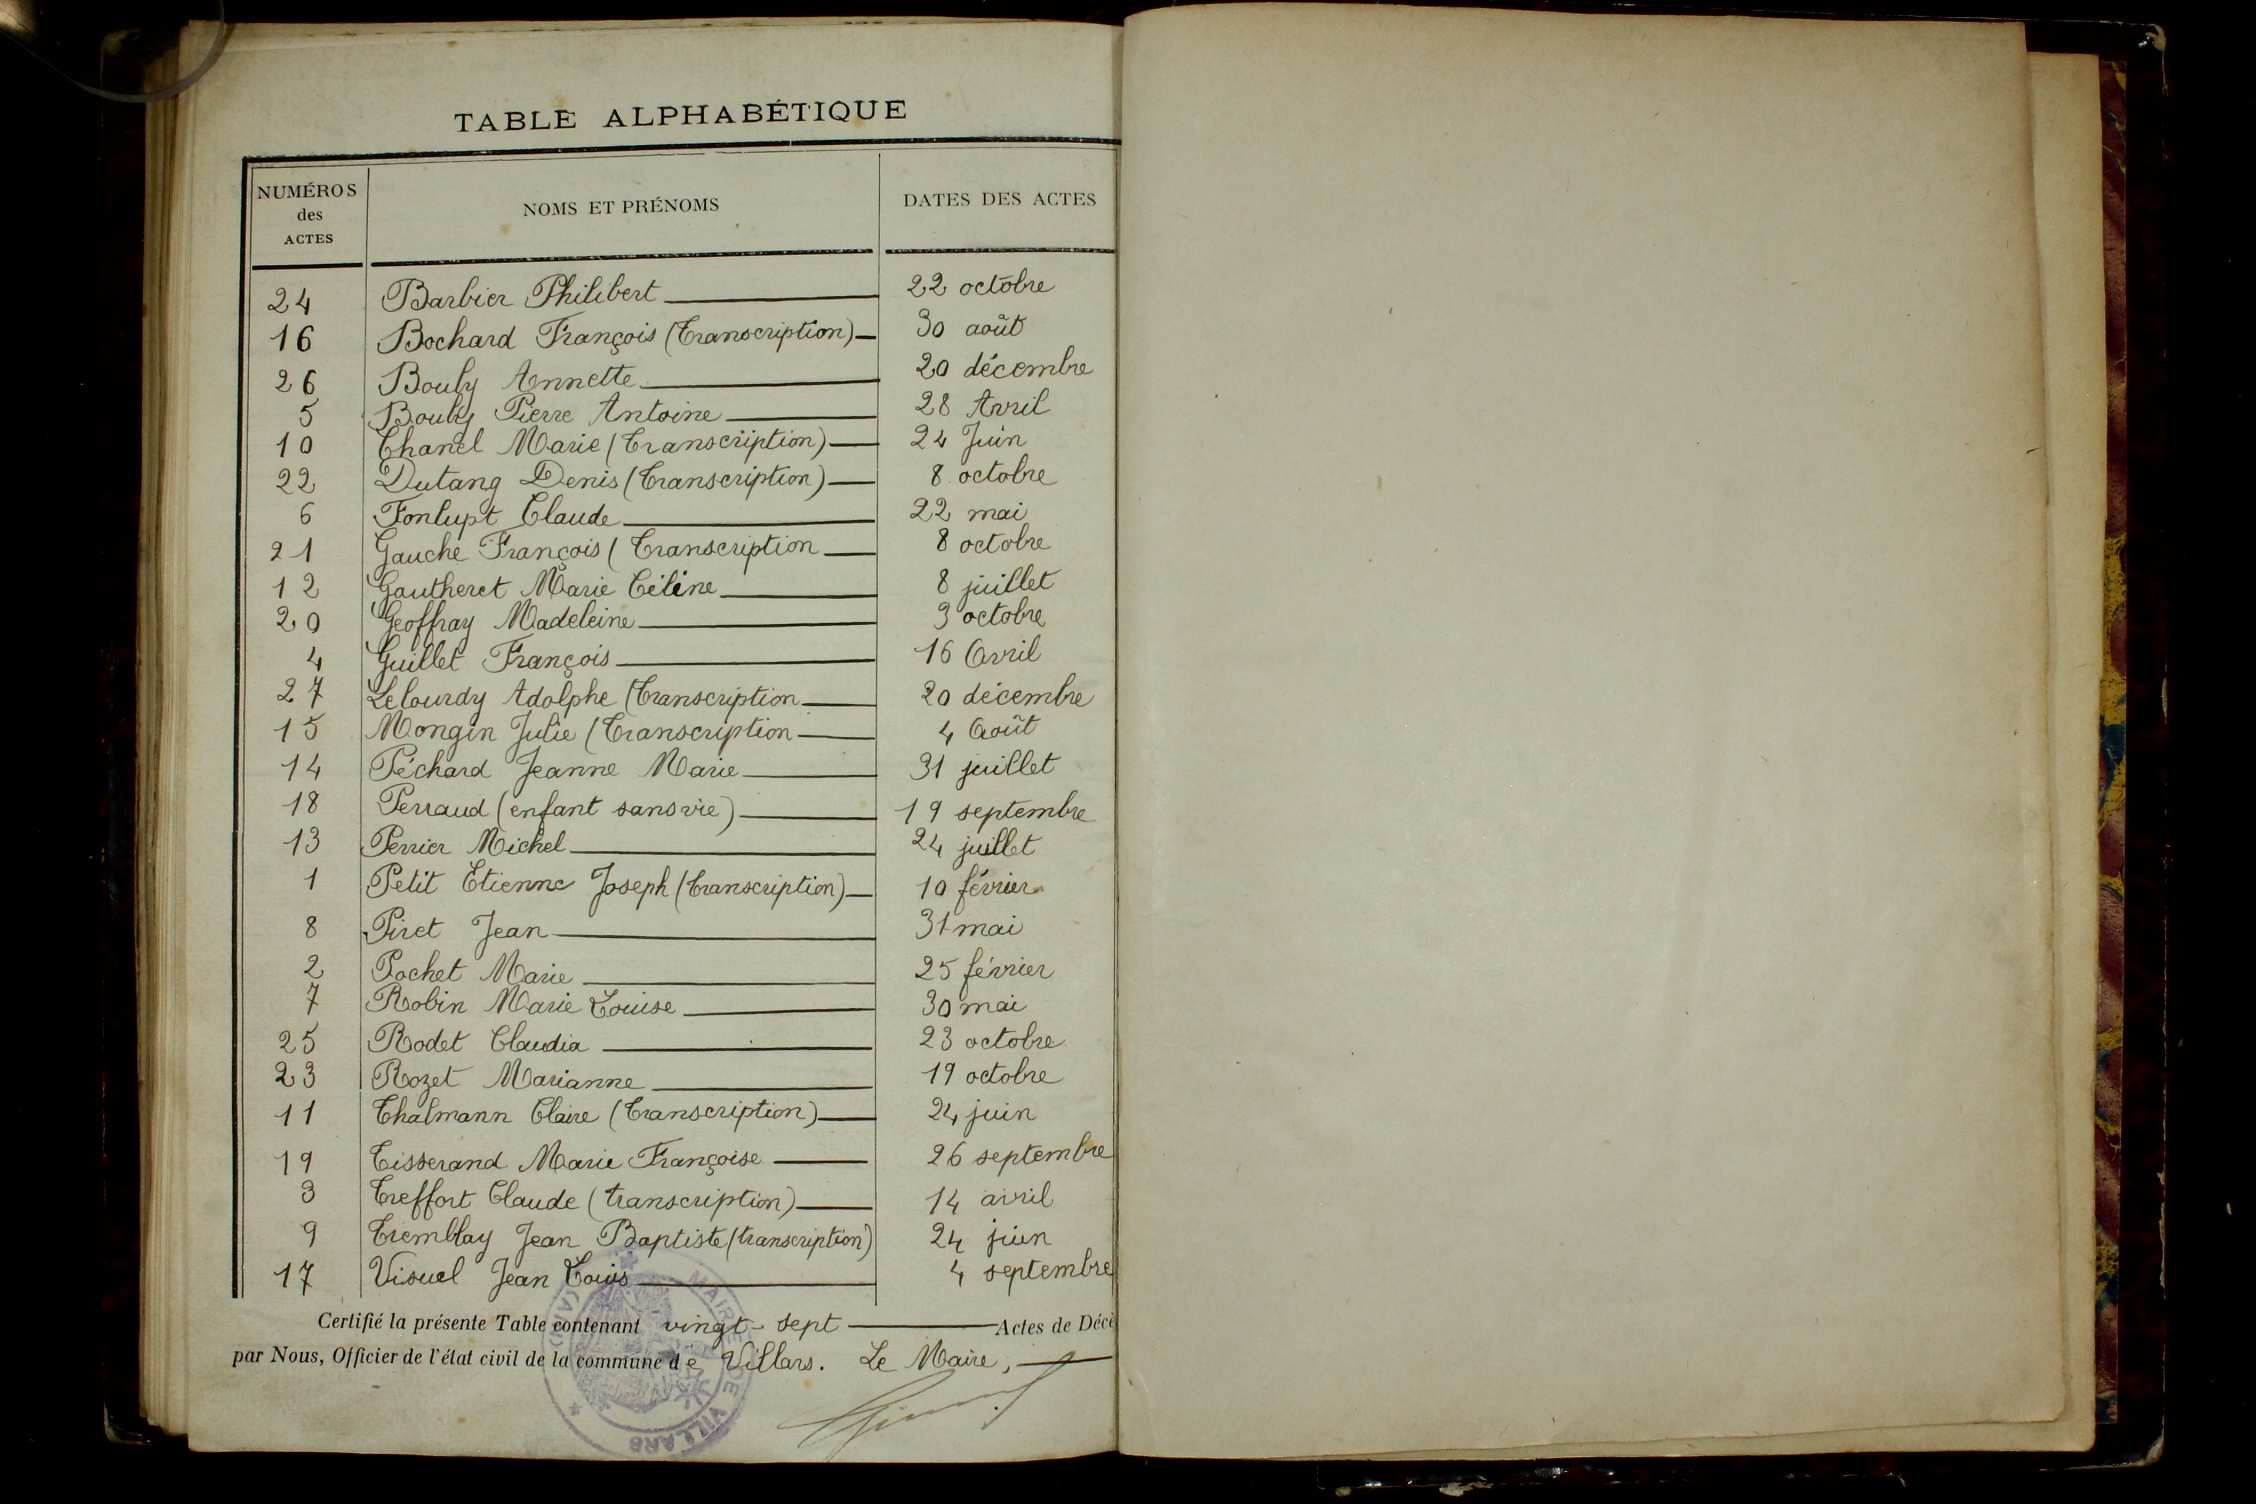 TABLE ALPHABÉTIQUE
NUMÉROS des ACTES NOMS ET PRÉNOMS DATES DES ACTES
24 Barbier Philibert 22 octobre
16 Bochard François (Transcription) 30 août
26 Bouby Annette 20 décembre
5 Bouby Pierre Antoine 28 Avril
10 Chanel Marie (Transcription) 24 Juin
22 Dutang Denis (Transcription) 8 octobre
6 Fonlupt Claude 22 mai
21 Gauche François (Transcription 8 octobre
12 Gautheret Marie Céline 8 juillet
20 Geoffray Madeleine 3 octobre
4 Guillet François 16 Avril
27 Lelourdy Adolphe (Transcription 20 décembre
15 Mongin Julie (Transcription 4 Août
14 Péchard Jeanne Marie 31 juillet
18 Perraud (enfant sans vie) 19 septembre
13 Perrier Michel 24 juillet
1 Petit Etienne Joseph (Transcription) 10 février
8 Piret Jean 31 mai
2 Pochet Marie 25 février
7 Robin Marie Louise 30 mai
25 Rodet Claudia 23 octobre
23 Rozet Marianne 19 octobre
11 Thalmann Claire (Transcription) 24 juin
19 Tisserand Marie Françoise 26 septembre
3 Treffort Claude (transcription) 14 avril
9 Tremblay Jean Baptiste (transcription) 24 juin
17 Visuel Jean Louis 4 septembre
Certifié la présente Table contenant vingt-sept Actes de Décè
par Nous, Officier de l'état civil de la commune de Villars. Le Maire,
MAIRIE DE VILLARS (AIN)